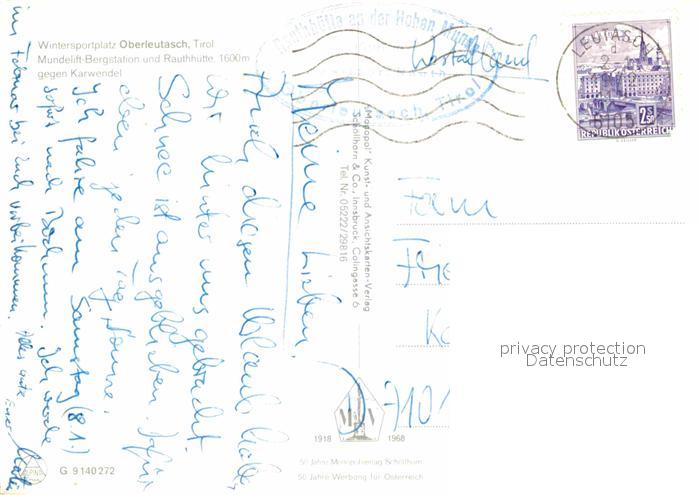 Wintersportplatz Oberleutasch, Tirol
Mundelift-Bergstation und Rauthhütte, 1600m
gegen Karwendel
Rauthhütte an der Hohen Munde
Oberleutasch, Tirol
LEUTASCH
6105
2.50
REPUBLIK ÖSTERREICH
Westautland
Meine Lieben,
Auch diesen Urlaub hätten
wir hinter uns gebracht.
Schnee ist ausgeblieben, dafür
eben jeden Tag Sonne.
Ich fahre am Samstag (8.1.)
sofort nach Bochum. Ich werde
im Februar bei Euch vorbeikommen. Alles Gute
Euer
"Monopol" Kunst- und Ansichtskarten-Verlag
Schöllhorn & Co., Innsbruck, Colingasse 6
Tel. Nr. 05222/29816
Fam
7101
privacy protection
Datenschutz
1918 1968
50 Jahre Monopolverlag Schöllhorn
50 Jahre Werbung für Österreich
G 9140272